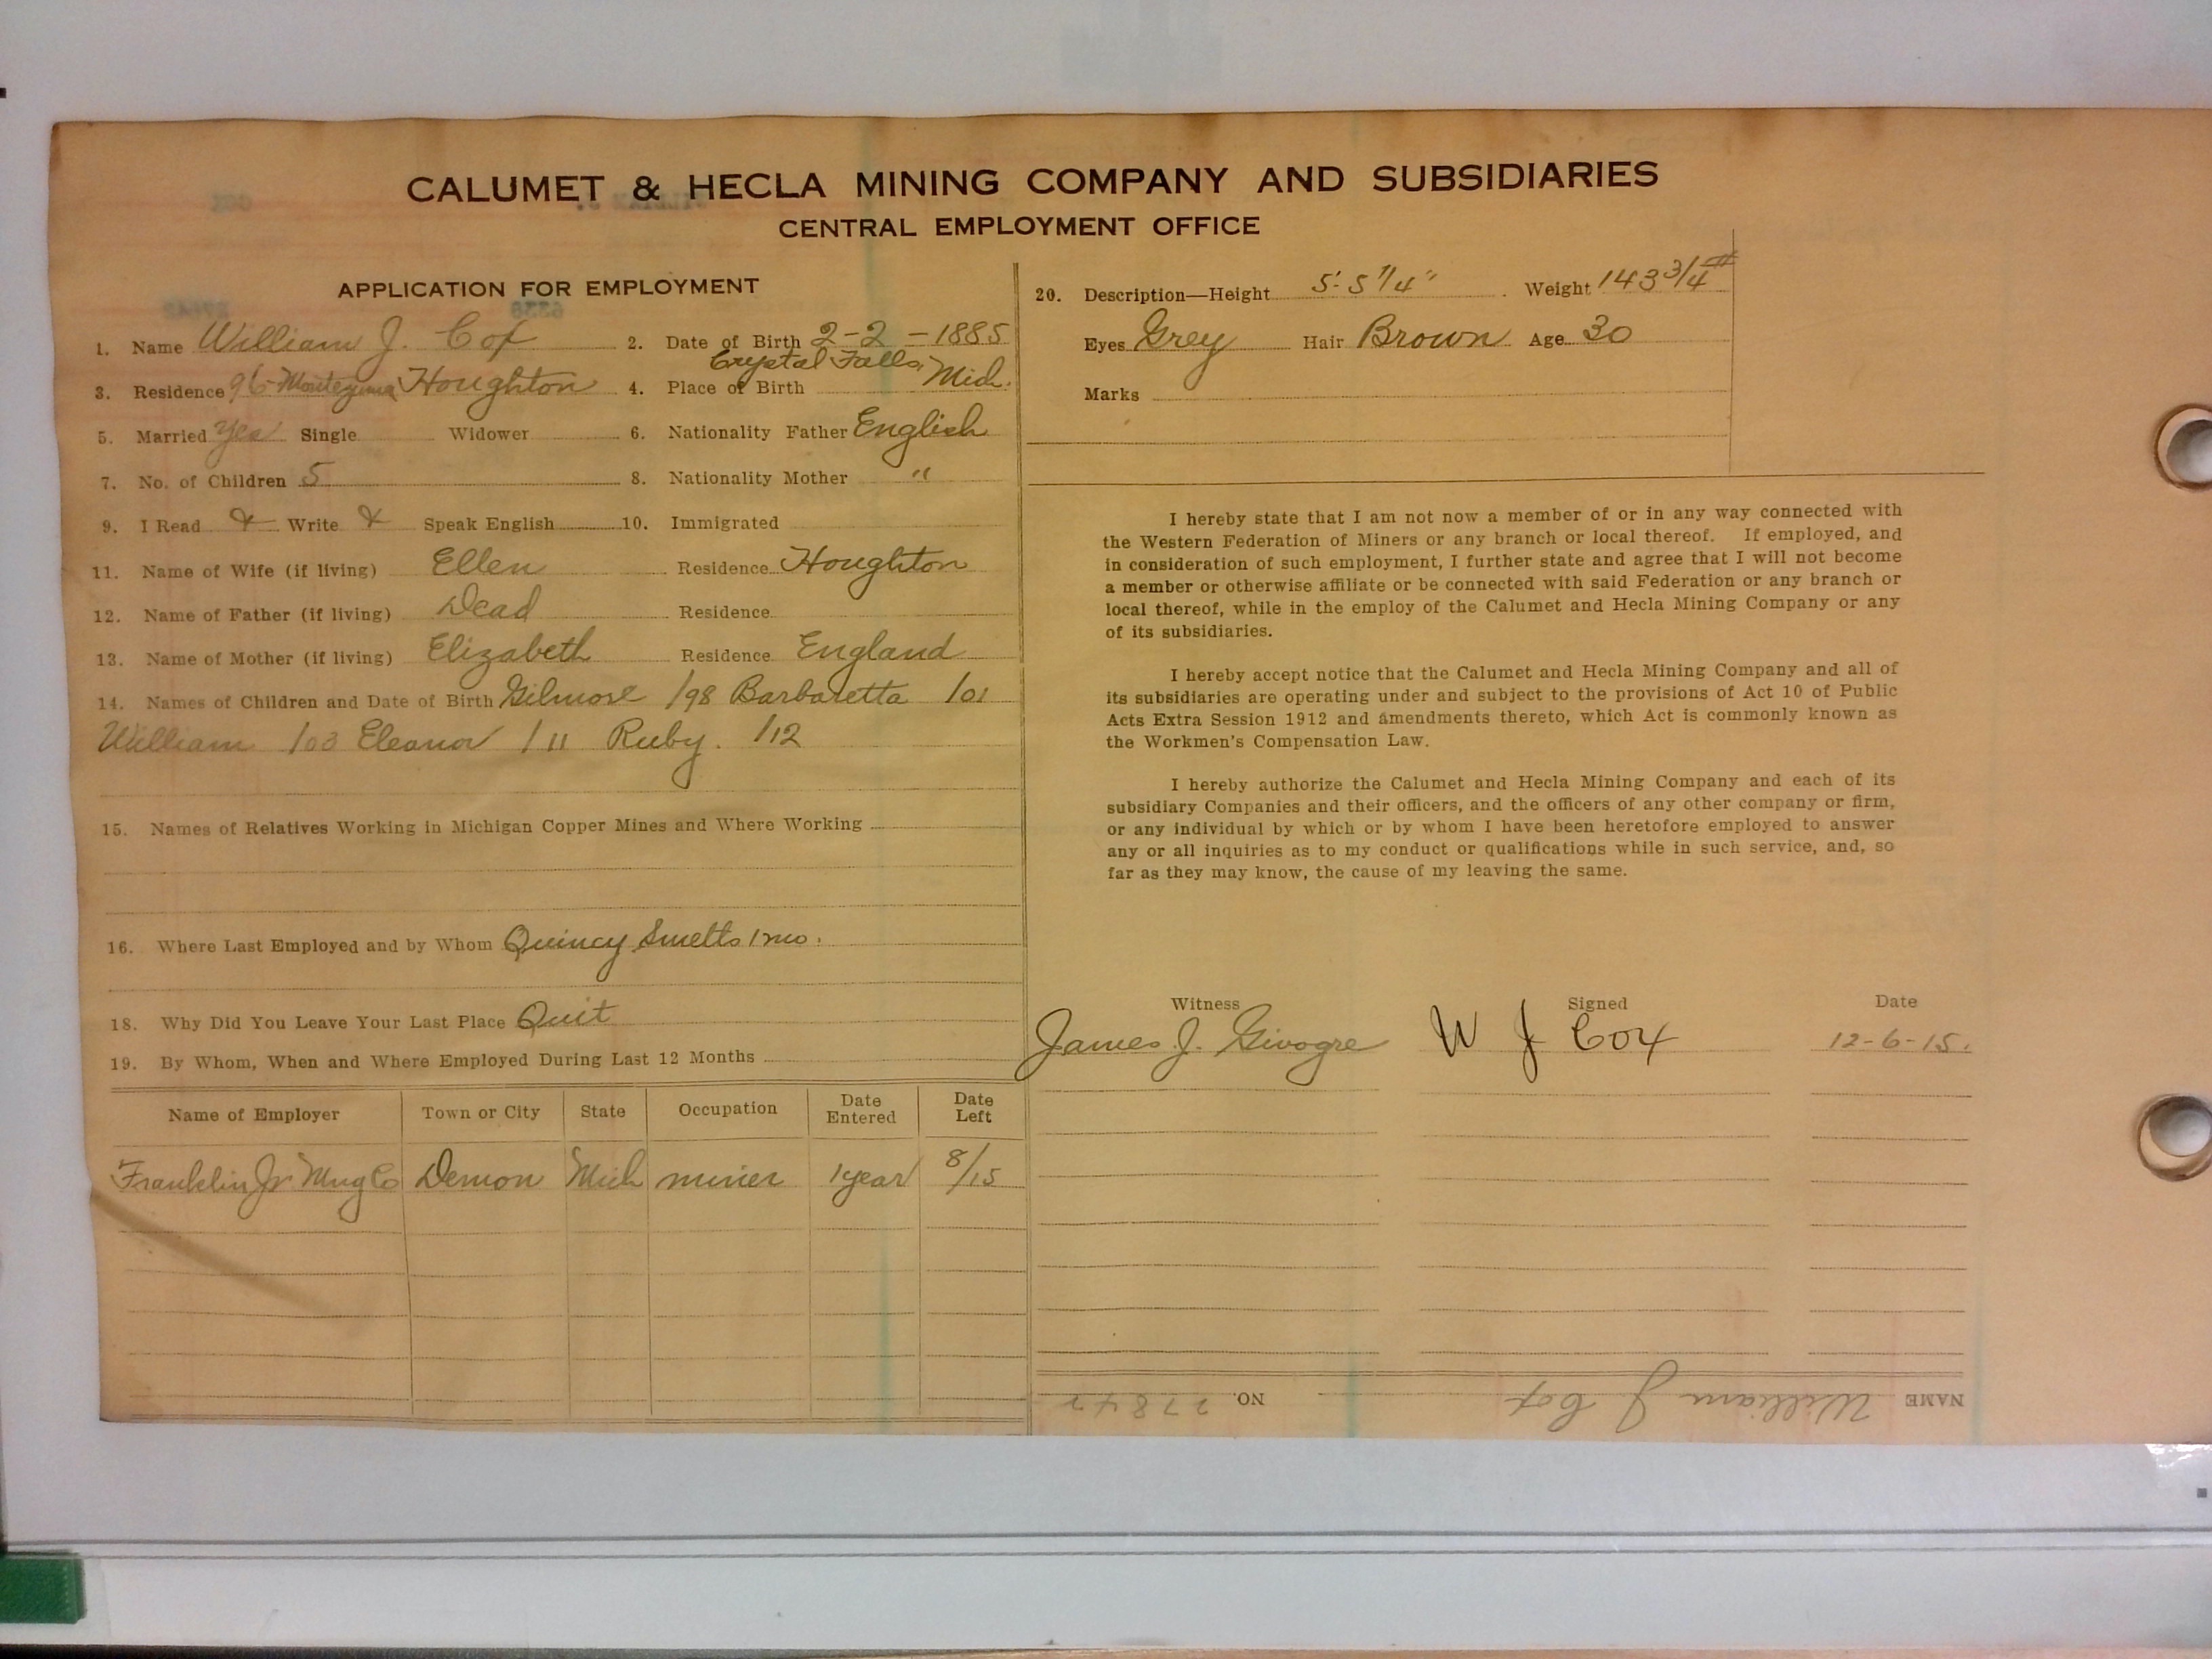 CALUMET & HECLA MINING COMPANY AND SUBSIDIARIES
CENTRAL EMPLOYMENT OFFICE
APPLICATION FOR EMPLOYMENT
1. Name William J. Cox 2. Date of Birth 2-2-1885
3. Residence 96 Montezuma Houghton 4. Place of Birth Crystal Falls, Mich.
5. Married Yes Single Widower 6. Nationality Father English
7. No. of Children 5 8. Nationality Mother "
9. I Read & Write & Speak English 10. Immigrated
11. Name of Wife (if living) Ellen Residence Houghton
12. Name of Father (if living) Dead Residence
13. Name of Mother (if living) Elizabeth Residence England
14. Names of Children and Date of Birth Gilmore /98 Barbaretta /01
William /03 Eleanor /11 Ruby. /12
15. Names of Relatives Working in Michigan Copper Mines and Where Working
16. Where Last Employed and by Whom Quincy Smelts 1 mo.
18. Why Did You Leave Your Last Place Quit
19. By Whom, When and Where Employed During Last 12 Months
Name of Employer Town or City State Occupation Date Entered Date Left
Franklin Jr Mng Co Demon Mich miner 1 year 8/15
20. Description—Height 5'-5 1/4" Weight 143 3/4 #
Eyes Grey Hair Brown Age 30
Marks
I hereby state that I am not now a member of or in any way connected with
the Western Federation of Miners or any branch or local thereof. If employed, and
in consideration of such employment, I further state and agree that I will not become
a member or otherwise affiliate or be connected with said Federation or any branch or
local thereof, while in the employ of the Calumet and Hecla Mining Company or any
of its subsidiaries.
I hereby accept notice that the Calumet and Hecla Mining Company and all of
its subsidiaries are operating under and subject to the provisions of Act 10 of Public
Acts Extra Session 1912 and amendments thereto, which Act is commonly known as
the Workmen's Compensation Law.
I hereby authorize the Calumet and Hecla Mining Company and each of its
subsidiary Companies and their officers, and the officers of any other company or firm,
or any individual by which or by whom I have been heretofore employed to answer
any or all inquiries as to my conduct or qualifications while in such service, and, so
far as they may know, the cause of my leaving the same.
Witness Signed Date
James J. W J Cox 12-6-15.
NAME William J Cox NO. 27842